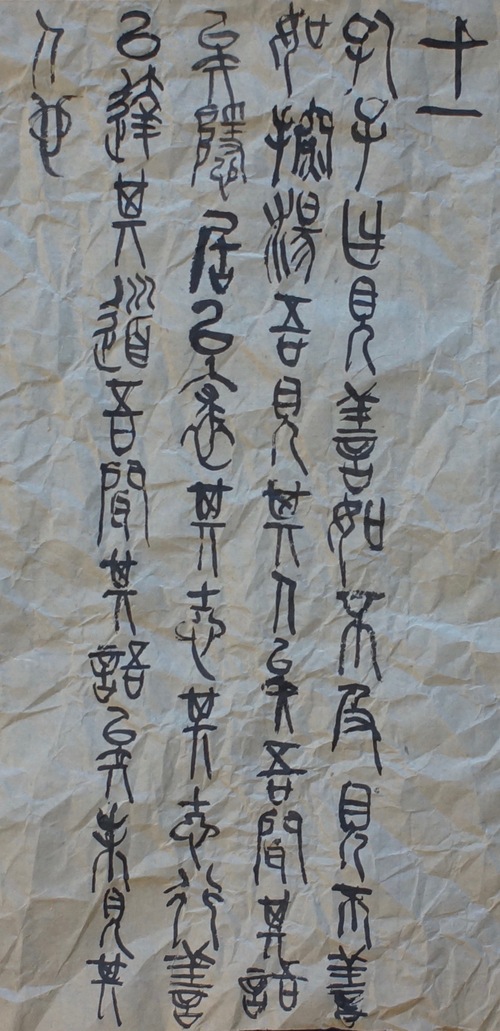 十一
孔子曰見善如不及見不善
如探湯吾見其人矣吾聞其語
矣隱居以求其志其志行義
以達其道吾聞其語矣未見其
人也